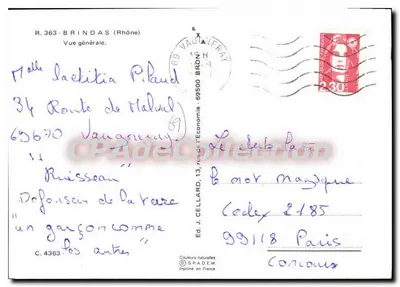 R. 363 - BRINDAS (Rhône)
Vue générale.
69 VAUGNERAY
2,30
Melle Laetitia
34 Route de
69670 Vaugneray
"Ruisseau"
Défenseur de la
"un garçon comme
les autres"
C. 4363
Ed. J. CELLARD, 13, rue de l'Economie - 69500 BRON
Couleurs naturelles
S.P.A.D.E.M.
Imprimé en France
le mot magique
Codex 2185
99118 Paris
Concours